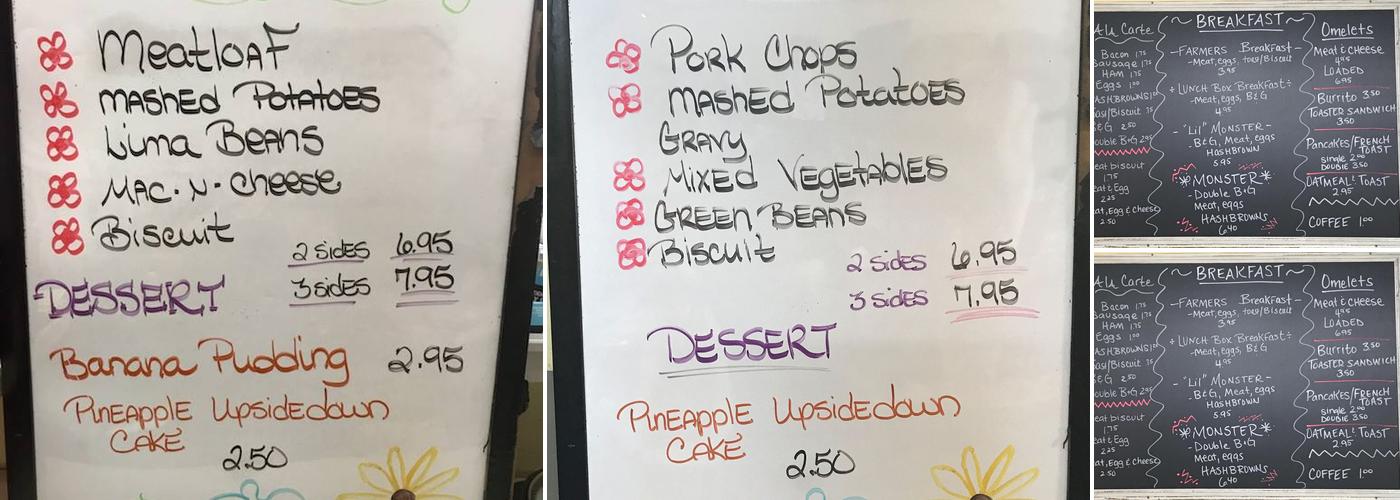 MeatloaF
MASHED POTATOES
Lima BEANS
MAC. N. Cheese
Biscuit
2 SIDES 6.95
3 SIDES 7.95
DESSERT
Banana Pudding 2.95
PINEAPPLE UPSIDEdown
CAKE
2.50
PORK Chops
MASHED POTATOES
GRAVY
MIXED VEGETABLES
GREEN BEANS
Biscuit
2 SIDES 6.95
3 SIDES 7.95
DESSERT
PINEAPPLE UPSIDEdown
CAKE
2.50
~ BREAKFAST ~
Carte
Bacon 1.75
Sausage 1.75
HAM 1.75
Eggs 1.00
2.50
Double B&G 2.95
biscuit
1.75
Egg
2.25
Egg & Cheese
-FARMERS BreakFast-
-Meat, eggs, toast/Biscuit
3.95
LUNCH Box BreakFast
-Meat, eggs, B&G
4.95
- "Lil" MONSTER -
- B&G, Meat, eggs
HASHBROWN
5.95
*MONSTER*
- Double B&G
Meat, eggs
HASHBROWNS
6.40
Omelets
Meat & CHEESE
4.95
LOADED
6.95
Burrito 3.50
TOASTER SANDWICH
3.50
Pancakes/FRENCH
TOAST
single 2.00
DOUBLE 3.50
OATMEAL & TOAST
2.95
COFFEE 1.00
~ BREAKFAST ~
Carte
Bacon 1.75
Sausage 1.75
HAM 1.75
Eggs 1.00
2.50
Double B&G 2.95
biscuit
1.75
Egg
2.25
Egg & Cheese
2.50
-FARMERS BreakFast-
-Meat, eggs, toast/Biscuit
3.95
LUNCH Box BreakFast
-Meat, eggs, B&G
4.95
- "Lil" MONSTER -
- B&G, Meat, eggs
HASHBROWN
5.95
*MONSTER*
- Double B&G
Meat, eggs
HASHBROWNS
6.40
Omelets
Meat & CHEESE
4.95
LOADED
6.95
Burrito 3.50
TOASTER SANDWICH
3.50
Pancakes/FRENCH
TOAST
single 2.00
DOUBLE 3.50
OATMEAL & TOAST
2.95
COFFEE 1.00